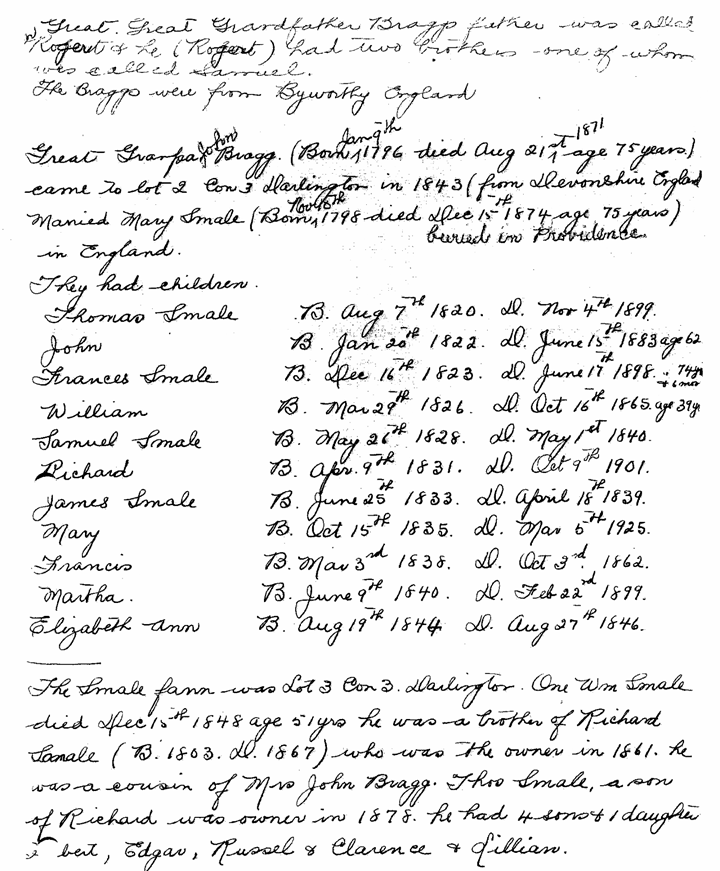 Great. Great Grandfather Braggs father was called
Rogert & he (Rogert) had two brothers one of whom
was called Samuel.
The Braggs were from Byworthy England
Great Granpa John Bragg. (Born Jan 9th 1796 died Aug 21st 1871 age 75 years.)
came to lot 2 Con 3 Darlington in 1843 (from Devonshire England
Married Mary Smale (Born Nov 18th 1798 died Dec 15th 1874 age 75 years)
in England. buried in Providence.
They had children.
Thomas Smale B. Aug 7th 1820. D. Nov 4th 1899.
John B. Jan 20th 1822. D. June 15th 1883 age 62
Frances Smale B. Dec 16th 1823. D. June 17th 1898. " 74 yr + 6 mos
William B. Mar 29th 1826. D. Oct 16th 1865. age 39 yr
Samuel Smale B. May 26th 1828. D. May 1st 1840.
Richard B. Apr. 9th 1831. D. Oct 9th 1901.
James Smale B. June 25th 1833. D. April 18th 1839.
Mary B. Oct 15th 1835. D. Mar 5th 1925.
Francis B. Mar 3rd 1838. D. Oct 3rd. 1862.
Martha. B. June 9th 1840. D. Feb 22nd 1899.
Elizabeth Ann B. Aug 19th 1844 D. Aug 27th 1846.
The Smale farm was Lot 3 Con 3. Darlington. One Wm Smale
died Dec 15th 1848 age 51 yrs he was a brother of Richard
Samale (B. 1803. D. 1867) who was the owner in 1861. he
was a cousin of Mrs John Bragg. Thos Smale, a son
of Richard was owner in 1878. he had 4 sons & 1 daughter
bert, Edgar, Russel & Clarence & Lillian.